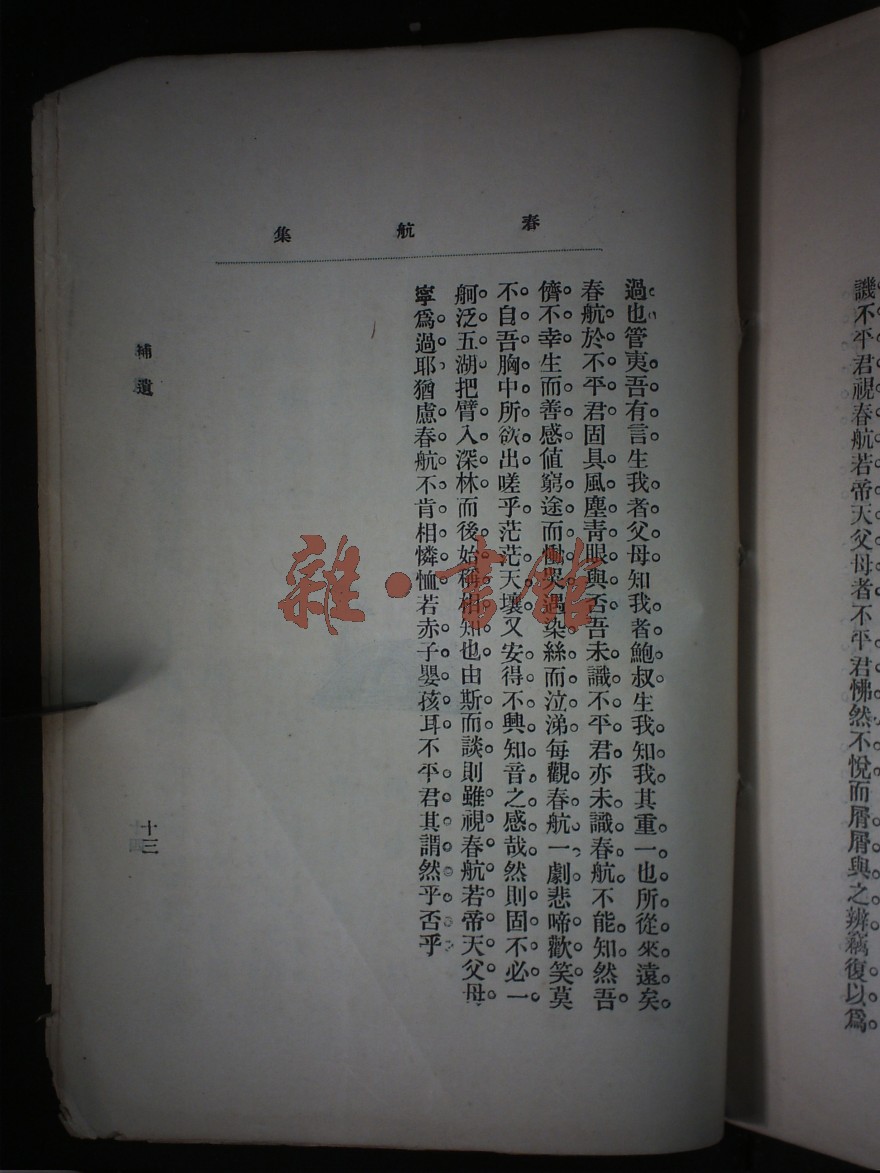 譏不平君視春航若帝天父母者不平君怫然不悅而屑屑與之辨竊復以爲
春航集
過也管夷吾有言生我者父母知我者鮑叔生我知我其重一也所從來遠矣
春航於不平君固具風塵靑眼與否吾未識不平君亦未識春航不能知然吾
儕不幸生而善感値窮途而慟哭遇染絲而泣涕每觀春航一劇悲啼歡笑莫
不自吾胸中所欲出嗟乎茫茫天壤又安得不興知音之感哉然則固不必一
舸泛五湖把臂入深林而後始稱相知也由斯而談則雖視春航若帝天父母
寧爲過耶猶慮春航不肯相憐恤若赤子嬰孩耳不平君其謂然乎否乎
補遺
十三
雜·書館